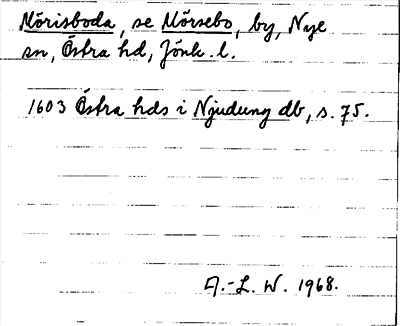 Mörisboda, se Mörsebo, by, Nye
sn, Östra hd, Jönk. l.
1603 Östra hds i Njudung db, s. 75.
A.-L. W. 1968.